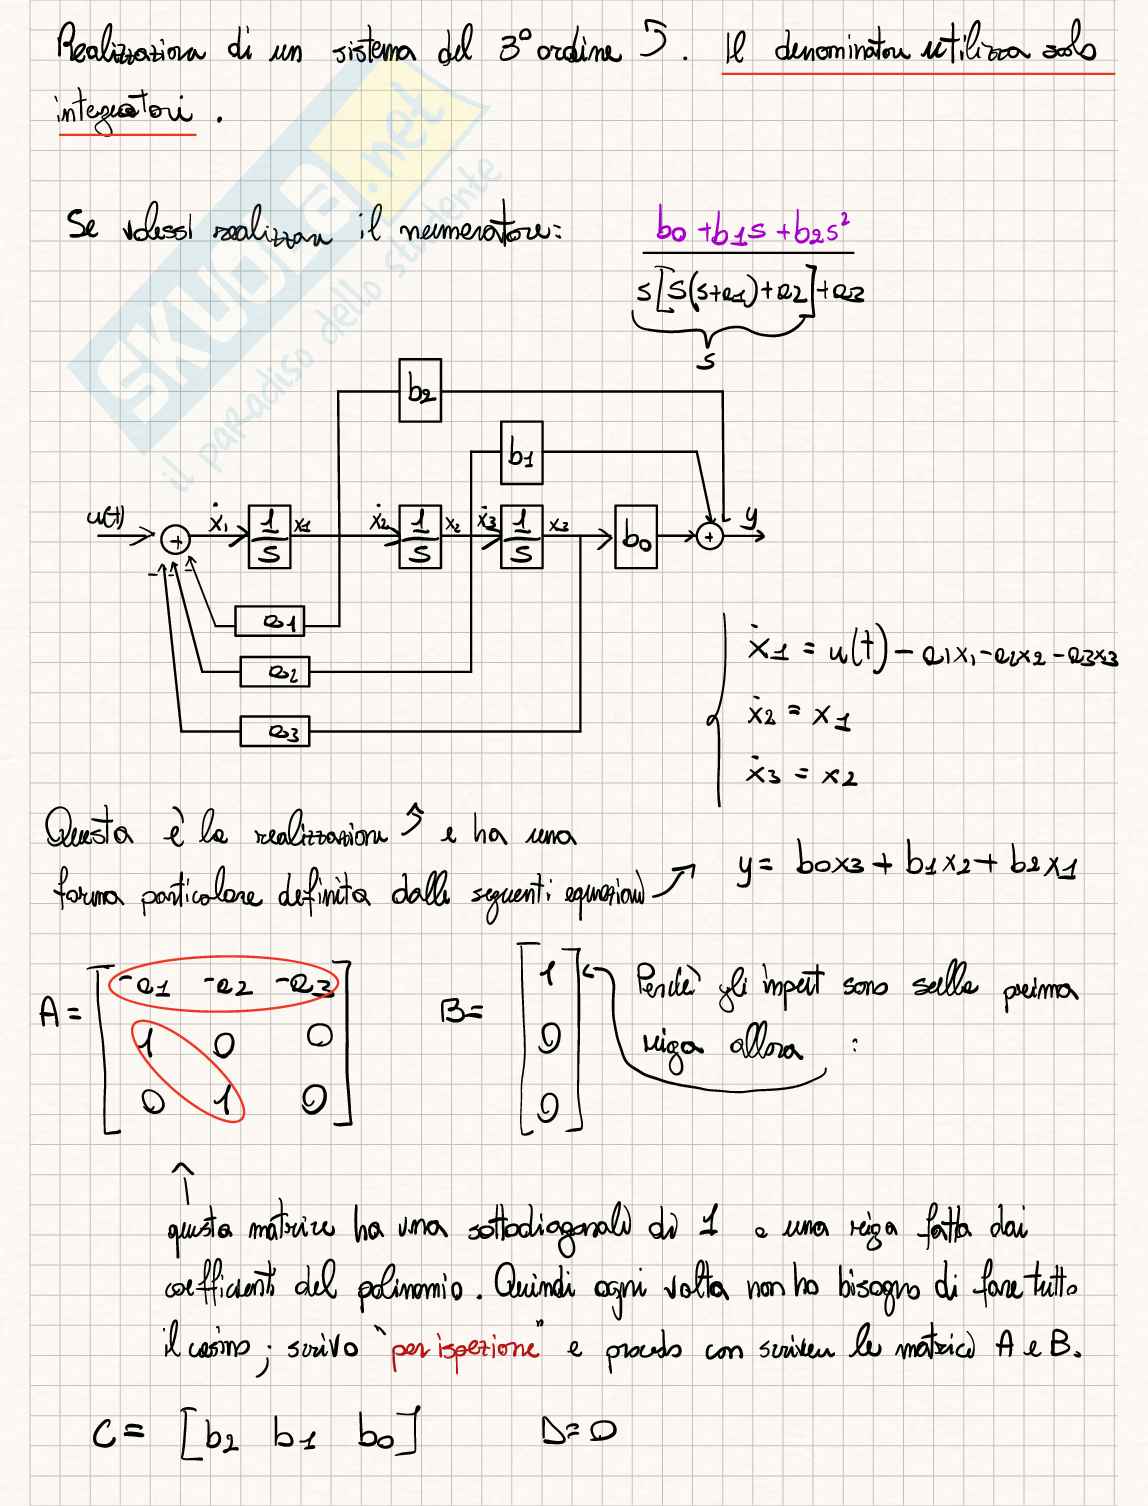 Realizzazione di un sistema del 3° ordine ↰. Il denominatore utilizza solo
integratori.
Se volessi realizzare il numeratore:
b0 + b1s + b2s²
s[s(s+a1)+a2]+a3
s
b2
b1
u(t) + ẋ1 1/s x1 ẋ2 1/s x2 ẋ3 1/s x3 b0 + y
- - -
a1
a2
a3
ẋ1 = u(t) - a1x1 - a2x2 - a3x3
ẋ2 = x1
ẋ3 = x2
Questa è la realizzazione e ha una
forma particolare definita dalle seguenti equazioni
y = b0x3 + b1x2 + b2x1
A = [-a1 -a2 -a3
1 0 0
0 1 0]
B = [1
0
0]
Perché gli input sono sulla prima
riga allora :
questa matrice ha una sottodiagonale di 1 e una riga fatta dai
coefficienti del polinomio. Quindi ogni volta non ho bisogno di fare tutto
il casino; scrivo "per ispezione" e procedo con scrivere le matrici A e B.
C = [b2 b1 b0] D = 0
SKUOLA.net
il paradiso dello studente